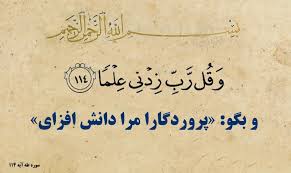 بسم الله الرحمن الرحيم
وَقُل رَّبِّ زِدْنِي عِلْمًا ﴿١١٤﴾
و بگو: «پروردگارا مرا دانش افزای»
سوره طه آیه ۱۱۴